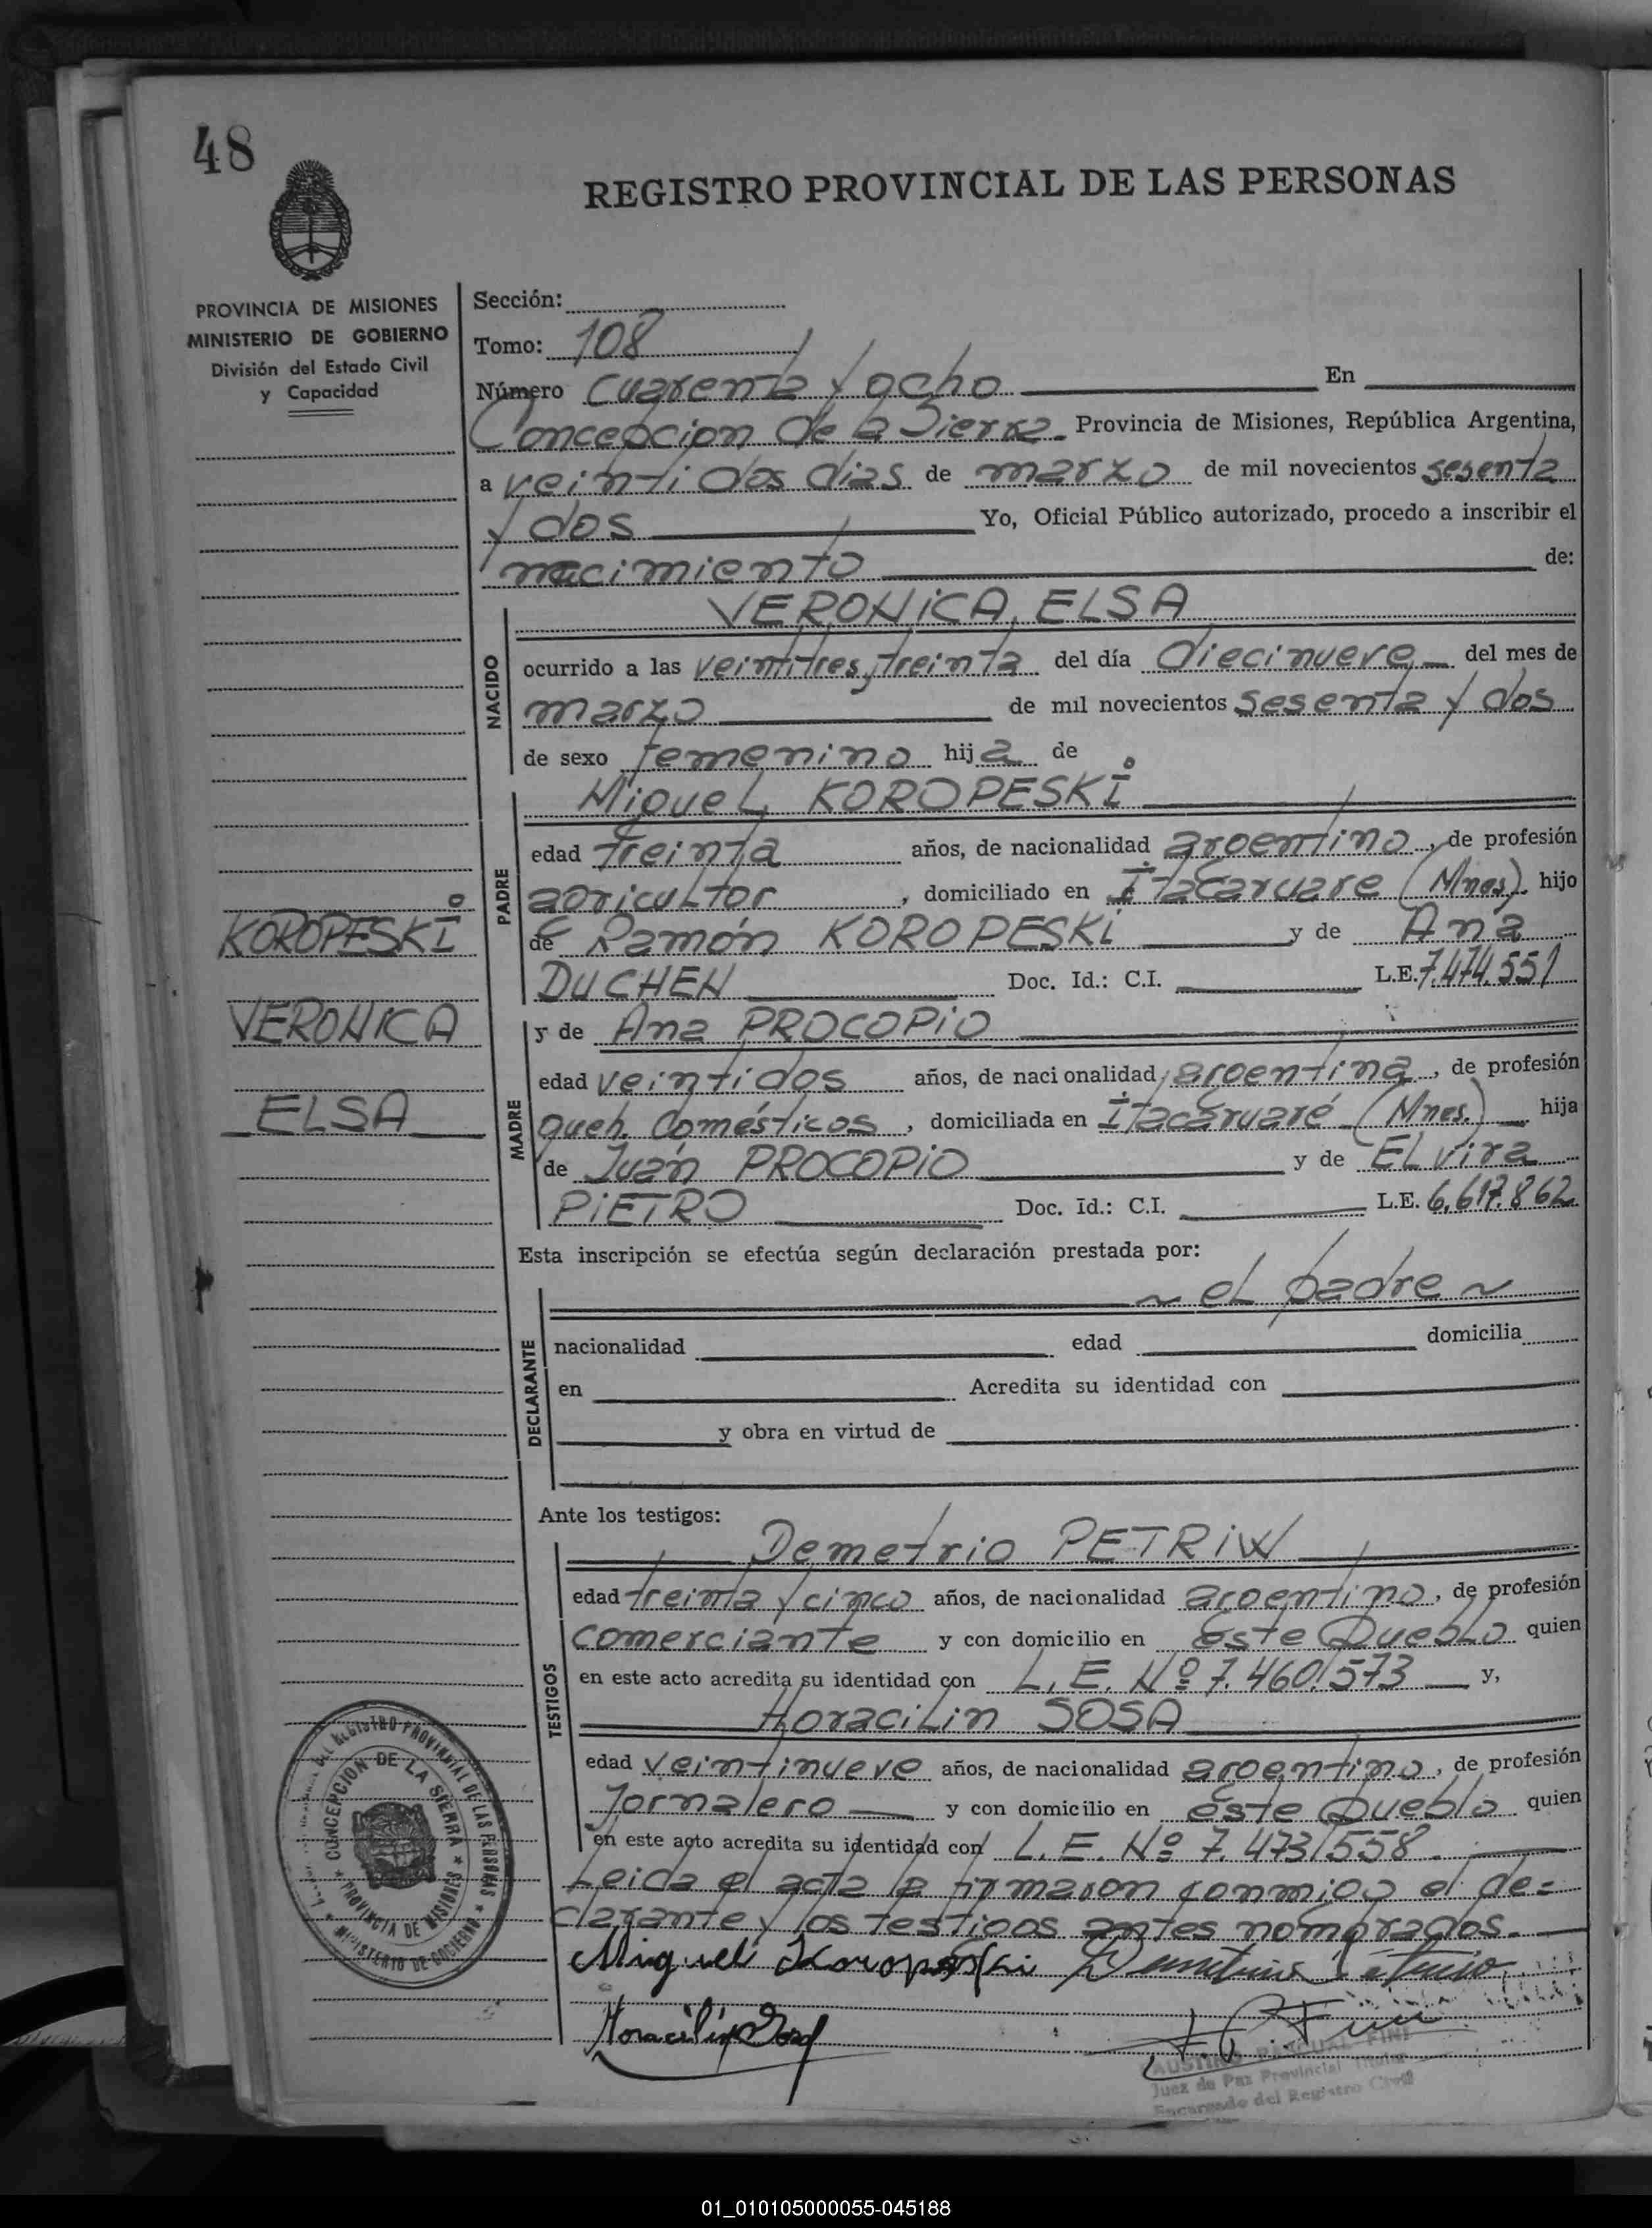 48
REGISTRO PROVINCIAL DE LAS PERSONAS
PROVINCIA DE MISIONES
MINISTERIO DE GOBIERNO
División del Estado Civil
y Capacidad
Sección:
Tomo: 108
Número cuarenta y ocho En
Concepcion de la Sierra Provincia de Misiones, República Argentina,
a veinti dos dias de marzo de mil novecientos sesenta
y dos Yo, Oficial Público autorizado, procedo a inscribir el
nacimiento de:
VERONICA ELSA
NACIDO
ocurrido a las veintitres, treinta del día diecinueve del mes de
marzo de mil novecientos sesenta y dos
de sexo femenino hija de
Miguel KOROPESKI
PADRE
edad treinta años, de nacionalidad argentino, de profesión
agricultor, domiciliado en Itacaruare (Mnes). hijo
de Ramón KOROPESKI y de Ana
DUCHEN Doc. Id.: C.I. L.E. 7.474.551
KOROPESKI
VERONICA
ELSA
MADRE
y de Ana PROCOPIO
edad veintidos años, de naci onalidad argentina, de profesión
queh. domésticos, domiciliada en Itacaruaré (Mnes.) hija
de Juan PROCOPIO y de Elvira
PIETRO Doc. Id.: C.I. L.E. 6.617.862
Esta inscripción se efectúa según declaración prestada por:
~ el padre ~
DECLARANTE
nacionalidad edad domicilia
en Acredita su identidad con
y obra en virtud de
Ante los testigos:
Demetrio PETRIW
TESTIGOS
edad treinta y cinco años, de nacionalidad argentino, de profesión
comerciante y con domicilio en este Pueblo quien
en este acto acredita su identidad con L. E. Nº 7.460.573 y,
Horacilin SOSA
edad veintinueve años, de nacionalidad argentino, de profesión
Jornalero y con domicilio en este Pueblo quien
en este acto acredita su identidad con L. E. Nº 7.473.558.
Leida el acta la firmaron conmigo el de=
clarante y los testigos antes nombrados.
Miguel Koropeski
Horacilin Sosa
REGISTRO PROVINCIAL DE LAS PERSONAS
CONCEPCION DE LA SIERRA
PROVINCIA DE MISIONES
MINISTERIO DE GOBIERNO
PASCUAL FINI
Juez de Paz Provincial Titular
Encargado del Registro Civil
01_010105000055-045188